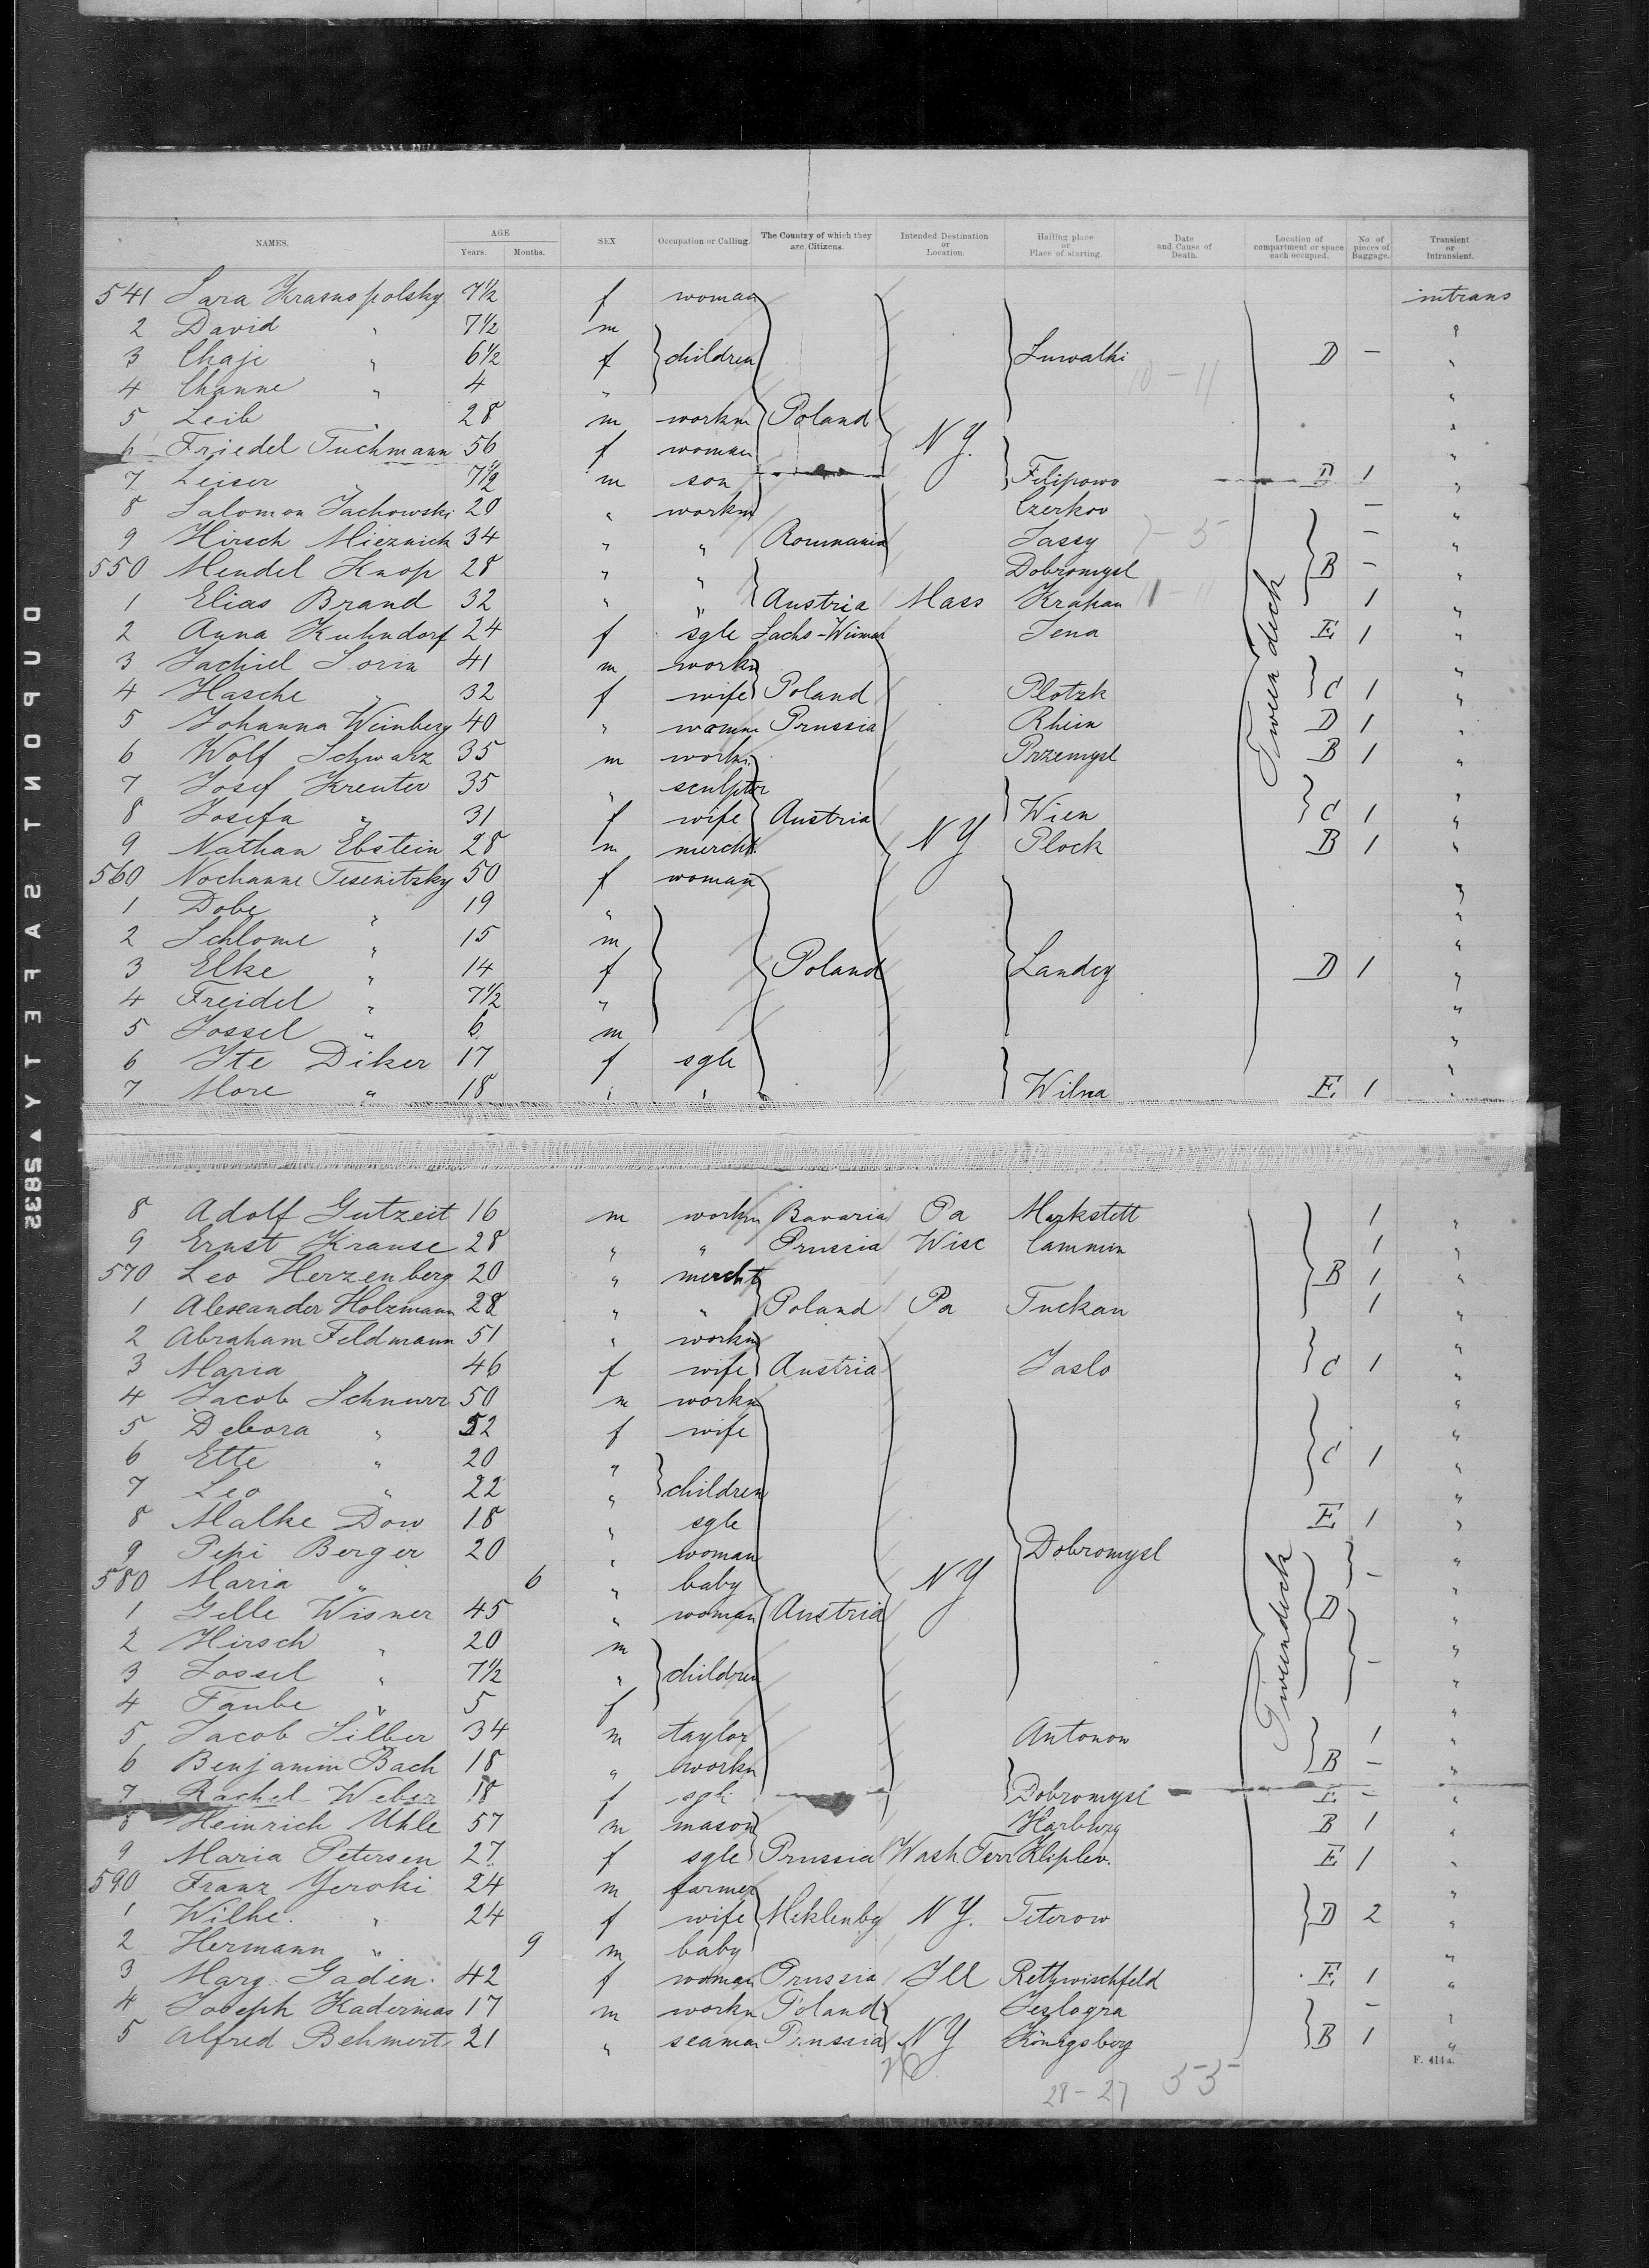 NAMES. AGE Years. Months. SEX Occupation or Calling. The Country of which they are Citizens. Intended Destination or Location. Hailing place or Place of starting. Date and Cause of Death. Location of compartment or space each occupied. No. of pieces of Baggage. Transient or Intransient.
541 Sara Krasnopolsky 7½ f woman intrans
2 David " 7½ m "
3 Chaje " 6½ f children Suwalki D - "
4 Channe " 4 " 10-11 "
5 Leib " 28 m workm Poland "
6 Friedel Tuchmann 56 f woman N Y. "
7 Leiser " 7½ m son Filipowo D 1 "
8 Salomon Jachowski 20 " workm Czerkov - "
9 Hirsch Mieznick 34 " " Roumania Jassy 7-5 - "
550 Mendel Knop 28 " " Dobromysl B - "
1 Elias Brand 32 " " Austria Mass Krakau 11-11 1 "
2 Anna Kuhndorf 24 f sgle Sachs-Weimar Jena E 1 "
3 Jachiel Soria 41 m workm "
4 Hasche " 32 f wife Poland Plotzk C 1 "
5 Johanna Weinberg 40 " woman Prussia Rhein D 1 "
6 Wolf Schwarz 35 m workm Przemysl B 1 "
7 Josef Kreuter 35 " sculptor "
8 Josefa " 31 f wife Austria Wien C 1 "
9 Nathan Ebstein 28 m mercht. N Y Plock B 1 "
560 Nochanne Tesenitzky 50 f woman "
1 Dobe " 19 " "
2 Schlome " 15 m "
3 Elke " 14 f Poland Landey D 1 "
4 Freidel " 7½ " "
5 Jossel " 6 m "
6 Ite Diker 17 f sgle "
7 More " 18 " " Wilna E 1 "
Tween deck
8 Adolf Gutzeit 16 m workm Bavaria Pa Markstett 1 "
9 Ernst Krause 28 " " Prussia Wisc Cammin 1 "
570 Leo Herzenberg 20 " mercht B 1 "
1 Alexander Holzmann 28 " " Poland Pa Tuckan 1 "
2 Abraham Feldmann 51 " workm "
3 Maria " 46 f wife Austria Jaslo C 1 "
4 Jacob Schnurr 50 m workm "
5 Debora " 52 f wife "
6 Ette " 20 " C 1 "
7 Leo " 22 " children "
8 Malke Dow 18 " sgle E 1 "
9 Pepi Berger 20 " woman Dobromysl "
580 Maria " 6 " baby N Y - "
1 Gelle Wisner 45 " woman Austria D "
2 Hirsch " 20 m "
3 Jossel " 7½ " children - "
4 Taube " 5 f "
5 Jacob Silber 34 m taylor Antonow 1 "
6 Benjamin Bach 18 " workm B - "
7 Rachel Weber 18 f sgle Dobromysl E - "
8 Heinrich Uhle 57 m mason Harburg B 1 "
9 Maria Petersen 27 f sgle Prussia Wash Terr Kliplev. E 1 "
590 Franz Jeroki 24 m farmer "
1 Wilhe. " 24 f wife Meklenbg N Y. Teterow D 2 "
2 Hermann " 9 m baby "
3 Marg. Gadin. 42 f woman Prussia Ill Rethwischfeld E 1 "
4 Joseph Kaderinas 17 m workm Poland Jeslogra - "
5 Alfred Behmert 21 " seaman Prussia N Y Königsberg B 1 "
Tweendeck
F. 414a.
28-27 55
DUPONT SAFETY ▲ 2385